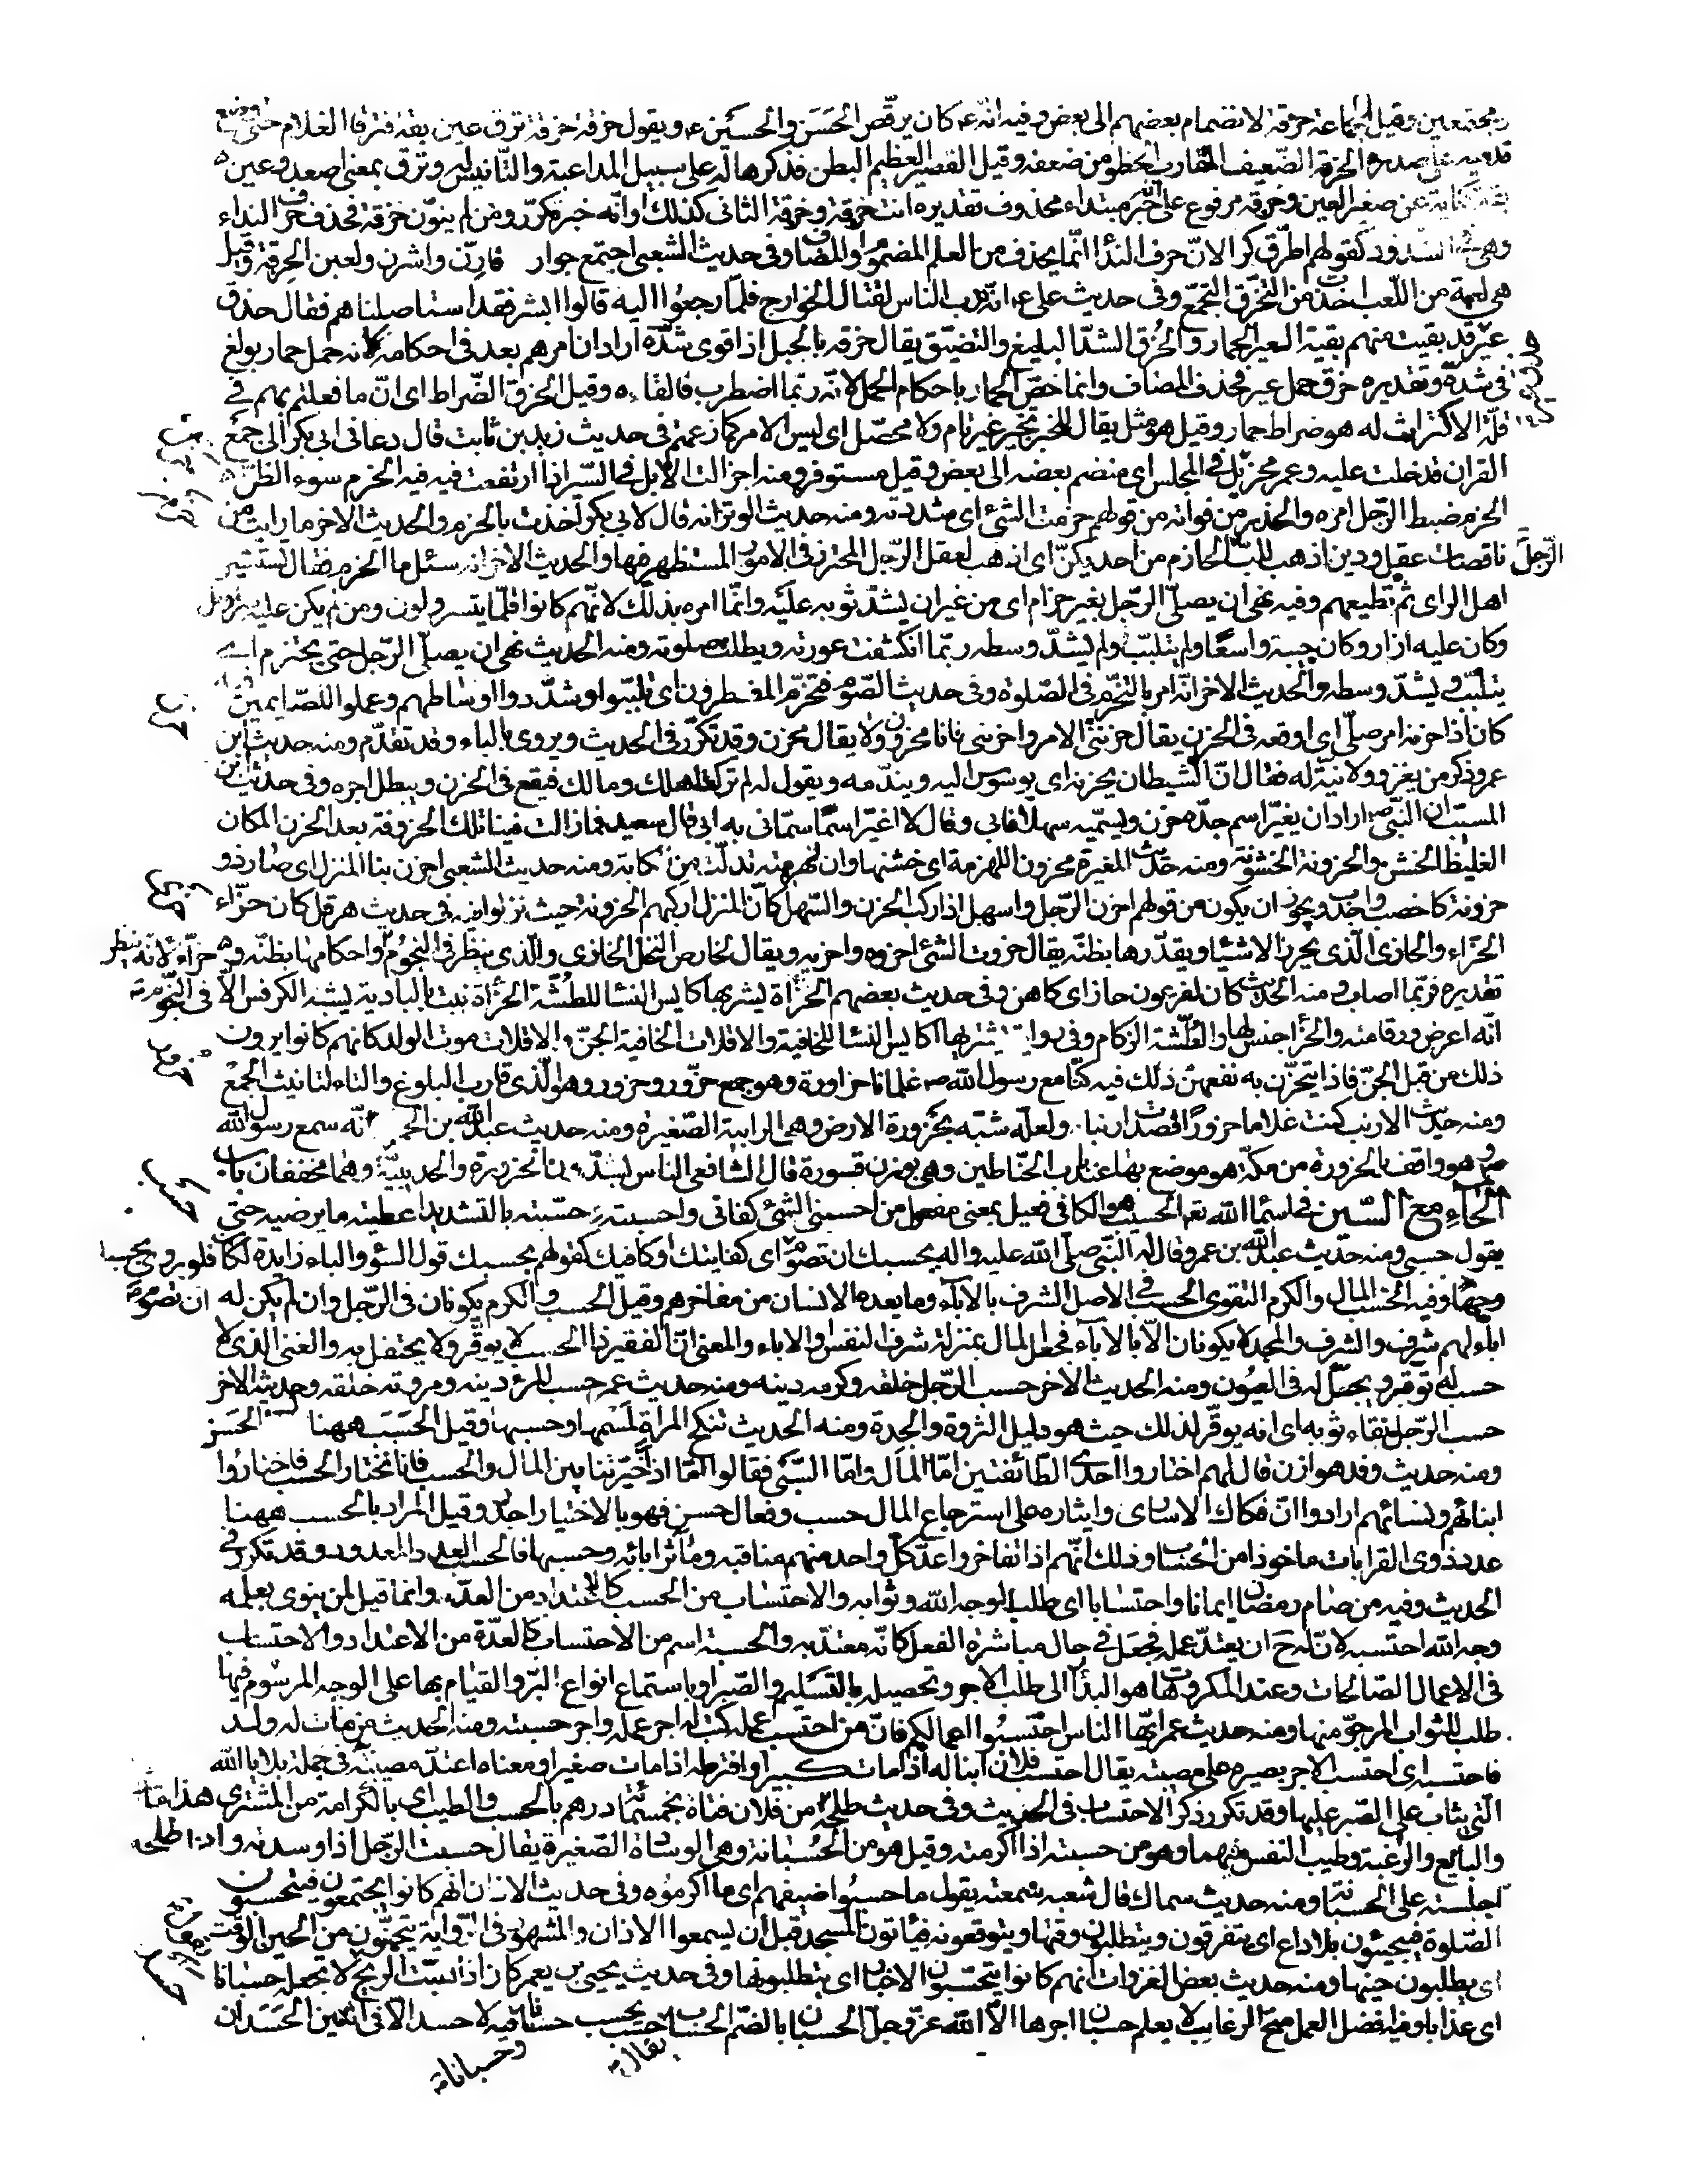 مجتمعين وقيل للجماعة حزقة لانضمام بعضهم الى بعض وفيه انه ع كان يرقّص الحَسَن والحسين ع ويقول حزقة حزقة ترق عين بقه فترقا الغلام حتى وضع
قدميه على صدره الحزقة الضّعيف المتقارب الخطو من ضعفه وقيل القصير العظيم البطن فذكرها له على سبيل المداعبة والتّانيس له وترق بمعنى اصعد وعين
بقة كناية عن صغر العين وحزقة مرفوع على خبر مبتداء محذوف تقديره انت حزقة وحزقة الثانى كذلك او انّه خبر مكرّر ومن لم ينوّن حزقة فحذف حرف النداء
وهى الشذوذ كقولهم اطرق كرا لانّ حرف النداء انّما يحذف من العلم المضموم او المضاف وفى حديث الشعبى اجتمع جوار فارنّ واشرن ولعبن الحزقة وقيل
هى لعبة من اللّعب اخذت من التحزّق التجمّع وفى حديث على ع انّه ندب الناس لقتال الخوارج فلمّا رجعوا اليه قالوا ابشر فقد استاصلناهم فقال حزق
عير قد بقيت منهم بقية العير الحمار والحزق الشدّ البليغ والتضيّق يقال حزقه بالحبل اذا قوى شدّه اراد ان امرهم بعد فى احكامه كانه حمل حمار بولغ
فى شدّه وتقديره حزق حمل عير فحذف المضاف وانما خصّ الحمار باحكام الحمل لانّه ربّما اضطرب فالقاه وقيل الحزق الضّراط اى انّ ما فعلتم بهم فى
قلّة الاكتراث له هو ضراط حمار وقيل هو مثل يقال للمخبر بخبر غير تام ولا محصّل اى ليس الامر كما زعمتم فى حديث زيد بن ثابت قال دعانى ابى بكر الى جمع
القران فدخلت عليه وعمر محزئل فى المجلس اى منضم بعضه الى بعض وقيل مستوفز ومنه احزالت الابل فى السّير اذا ارتفعت فيه فيه الحزم سوء الظن
الحزم ضبط الرّجل امره والحذر من فواته من قولهم حزمت الشئ اى شددته ومنه حديث الوتر انه قال لابى بكر اخذت بالحزم والحديث الاخر ما رايت من
ناقصات عقل ودين اذهب للبّ الحازم من احديكنّ اى اذهب لعقل الرّجل المحترز فى الامور المستظهر فيها والحديث الاخر انه سئل ما الحزم فقال تستشير
الرّجل
اهل الراى ثم تطيعهم وفيه نهى ان يصلّى الرّجل بغير حزام اى من غير ان يشدّ ثوبه عليه وانّما امره بذلك لانّهم كانوا قلّما يتسرولون ومن لم يكن عليه سراويل
وكان عليه ازار وكان جيبه واسعًا ولم يتلبّب ولم يشدّ وسطه ربّما انكشفت عورته وبطلت صلوته ومنه الحديث نهى ان يصلّى الرّجل حتى يحتزم اى
يتلبّب ويشدّ وسطه والحديث الاخر انّه امر بالتحزّم فى الصّلوة وفى حديث الصّوم فتحزّم المفطرون اى تلبّبوا وشدّدوا اوساطهم وعملوا للصّايمين
كان اذا حزنه امر صلّى اى اوقعه فى الحزن يقال حزننى الامر واحزننى فانا محزون ولا يقال محزن وقد تكرّر فى الحديث ويروى بالباء وقد تقدّم ومنه حديث ابن
عمر وذكر من يغزو ولا نيّة له فقال انّ الشيطان يحزنه اى يوسوس اليه ويندّمه ويقول له لم تركت اهلك ومالك فيقع فى الحزن ويبطل اجره وفى حديث ابن
المسيّب ان النّبىّ ص اراد ان يغيّر اسم جدّه حزن ويسمّيه سهلًا فابى وقال لا اغيّر اسمًا سمّانى به ابى قال سعيد فما زالت فينا تلك الحزونة بعد الحزن المكان
الغليظ الخشن والحزونة الخشونة ومنه حديث المغيرة محزون اللهزمة اى خشنها وان لهزمته تدلّت من كابة ومنه حديث الشعبى احزن بنا المنزل اى صار ذو
حزونة كاخصب واجدب ويجوز ان يكون من قولهم احزن الرّجل واسهل اذا ركب الحزن والسّهل كانّ المنزل اركبهم الحزونة حيث نزلوا فيه فى حديث هرقل كان حزّاء
الحزّاء والحازى الّذى يحزر الاشياء ويقدّرها بظنّه يقال حزوت الشئ احزوه واحزيه ويقال لخارص النخل الحازى والّذى ينظر فى النجوم واحكامها بظنّه حزّاء لانّه ينظر
تقديره فربّما اصاب ومنه الحديث كان لفرعون حاز اى كاهن وفى حديث بعضهم الحزاة يشربها اكايس النساء للطشّة الحزاة نبت بالبادية يشبه الكرفس الّا
انّه اعرض ورقا منه والحزا جنس لها والطّشّة الزكام وفى رواية يشتريها اكايس النساء للخافية والاقلات الخافية الجنّ والاقلات موت الولد كانهم كانوا يرون
ذلك من قبل الجنّ فاذا تبخّرن به نفعهنّ ذلك فيه كنّا مع رسول الله ص غلمانا حزاورة وهو جمع حزّور وحزور وهو الّذى قارب البلوغ والتاء لتانيث الجمع
ومنه حديث الارنب كنت غلاما حزورًا فصدت ارنبا ولعلّه شبّه بحزورة الارض وهى الرابية الصّغيرة ومنه حديث عبد الله بن انّه سمع رسول الله
ص وهو واقف بالحزورة من مكّة هو موضع بها عند باب الحنّاطين وهى بوزن قسورة قال الشافعى الناس يشدّدون الحزورة والحديبيّة وهما مخففان باب
الحآء مع السّين فى اسماء الله تع الحسيب هو الكافى فعيل بمعنى مفعل من احسبنى الشئ كفانى واحسبته وحسّبته بالتشديد اعطيته ما يرضيه حتى
يقول حسبى ومنه حديث عبد الله بن عمر وقال له النّبى صلّى الله عليه واله يحسبك ان تصوم اى كفايتك او كافيك كقولهم بحسبك قول السوء والباء زايدة
وفيه الحسب المال والكرم التقوى الحسب فى الاصل الشرف بالآباء وما يعده الانسان من مفاخرهم وقيل الحسب والكرم يكونان فى الرّجل وان لم يكن له
اباء لهم شرف والشرف والمجد لا يكونان الّا بالاباء فجعل المال بمنزلة شرف النفس او الاباء والمعنى انّ الفقير ذا الحسب لا يوقّر ولا يحتفل به والغنى الذى لا
حسب له يوقّر ويجلّ له فى العيون ومنه الحديث الاخر حسب الرّجل خلقه وكرمه دينه ومنه حديث عمر حسب المرء دينه ومروته خلقه وحديثه الاخر
حسب الرّجل نقاء ثوبه اى انه يوقّر لذلك حيث هو دليل الثروة والجدة ومنه الحديث تنكح المراة لميسمها وحسبها وقيل الحسب ههنا
ومنه حديث وفد هوازن قال لهم اختاروا احدى الطّائفتين امّا المال وامّا السّبى فقالوا امّا اذ خيّرتنا بين المال والحسب فانا نختار الحسب فاختاروا
ابنائهم ونسائهم ارادوا انّ فكاك الاسارى وايثاره على استرجاع المال حسب وفعال حسن فهو بالاختيار اجدر وقيل المراد بالحسب ههنا
عدد ذوى القرابات ماخوذا من الحساب وذلك انّهم اذا تفاخروا عدّ كلّ واحد منهم مناقبه ومآثر ابائه وحسبها فالحسب العدّ والمعدود وقد تكرّر فى
الحديث وفيه من صام رمضان ايمانا واحتسابا اى طلبا لوجه الله وثوابه والاحتساب من الحسب كالاعتداد من العدّ وانما قيل لمن ينوى بعمله
وجه الله احتسبه لانّ له ح ان يعتدّ عمله فجعل فى حال مباشرة الفعل كانّه معتدّ به والحسبة اسم من الاحتساب كالعدّة من الاعتداد والاحتساب
فى الاعمال الصّالحات وعند المكروهات هو البدار الى طلب الاجر وتحصيله بالتسليم والصّبر او باستماع انواع البرّ والقيام بها على الوجه المرسوم فيها
طلبا للثواب المرجوّ منها ومنه حديث عمر ايّها الناس احتسبوا اعمالكم فانّ من احتسب عمله كتب له اجر عمله واجر حسبته ومنه الحديث من مات له ولد
فاحتسبه اى احتسب الاجر بصبره على مصيبته يقال احتسب فلان ابنا له اذا مات كبيرا وافترطه اذا مات صغيرا ومعناه اعتدّ مصيبته فى جملة بلايا الله
الّتى يثاب على الصّبر عليها وقد تكرر ذكر الاحتساب فى الحديث وفى حديث طلحة من فلان فتاة بخمسمائة درهم بالحسب والطيب اى بالكرامة من المشترى هذا ما
والبايع والرغبة وطيب النفس منهما وهو من حسبته اذا اكرمته وقيل هو من الحسبانة وهى الوسادة الصّغيرة يقال حسبت الرّجل اذا وسدته واذا
اجلسته على الحسبانة ومنه حديث سماك قال شعبه سمعته يقول ما حسبوا ضيفهم اى ما اكرموه وفى حديث الاذان انهم كانوا يجتمعون فيتحسبون
الصّلوة فيجيئون بلا داع اى يتفرقون ويتطلبون وقتها ويتوقعونه فياتون المسجد قبل ان يسمعوا الاذان والمشهور فى الرّواية يتحيّنون من الحين الوقت
اى يطلبون حينها ومنه حديث بعض الغزوات انهم كانوا يتحسّبون الاخبار اى يتطلبونها وفى حديث يحيى بن يعمر كان اذا هبّت الريح لا تجعلها حسبانا
اى عذابا وفيه افضل العمل منح الرغايب لا يعلم حسبان اجرها الّا الله عزّ وجلّ الحسبان بالضّم الحساب يقال حسب يحسب حسابا وحسبانا فيه لا حسد الّا فى اثنين الحسد ان